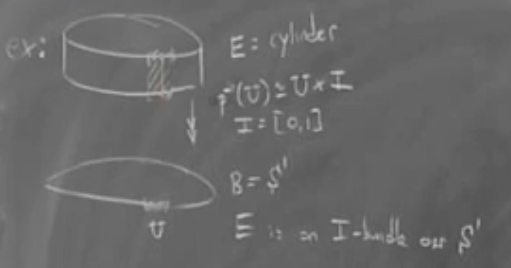 ex:
E = cylinder
p⁻¹(U) ≅ U × I
I = [0,1]
B = S¹
U
E is an I-bundle over S¹